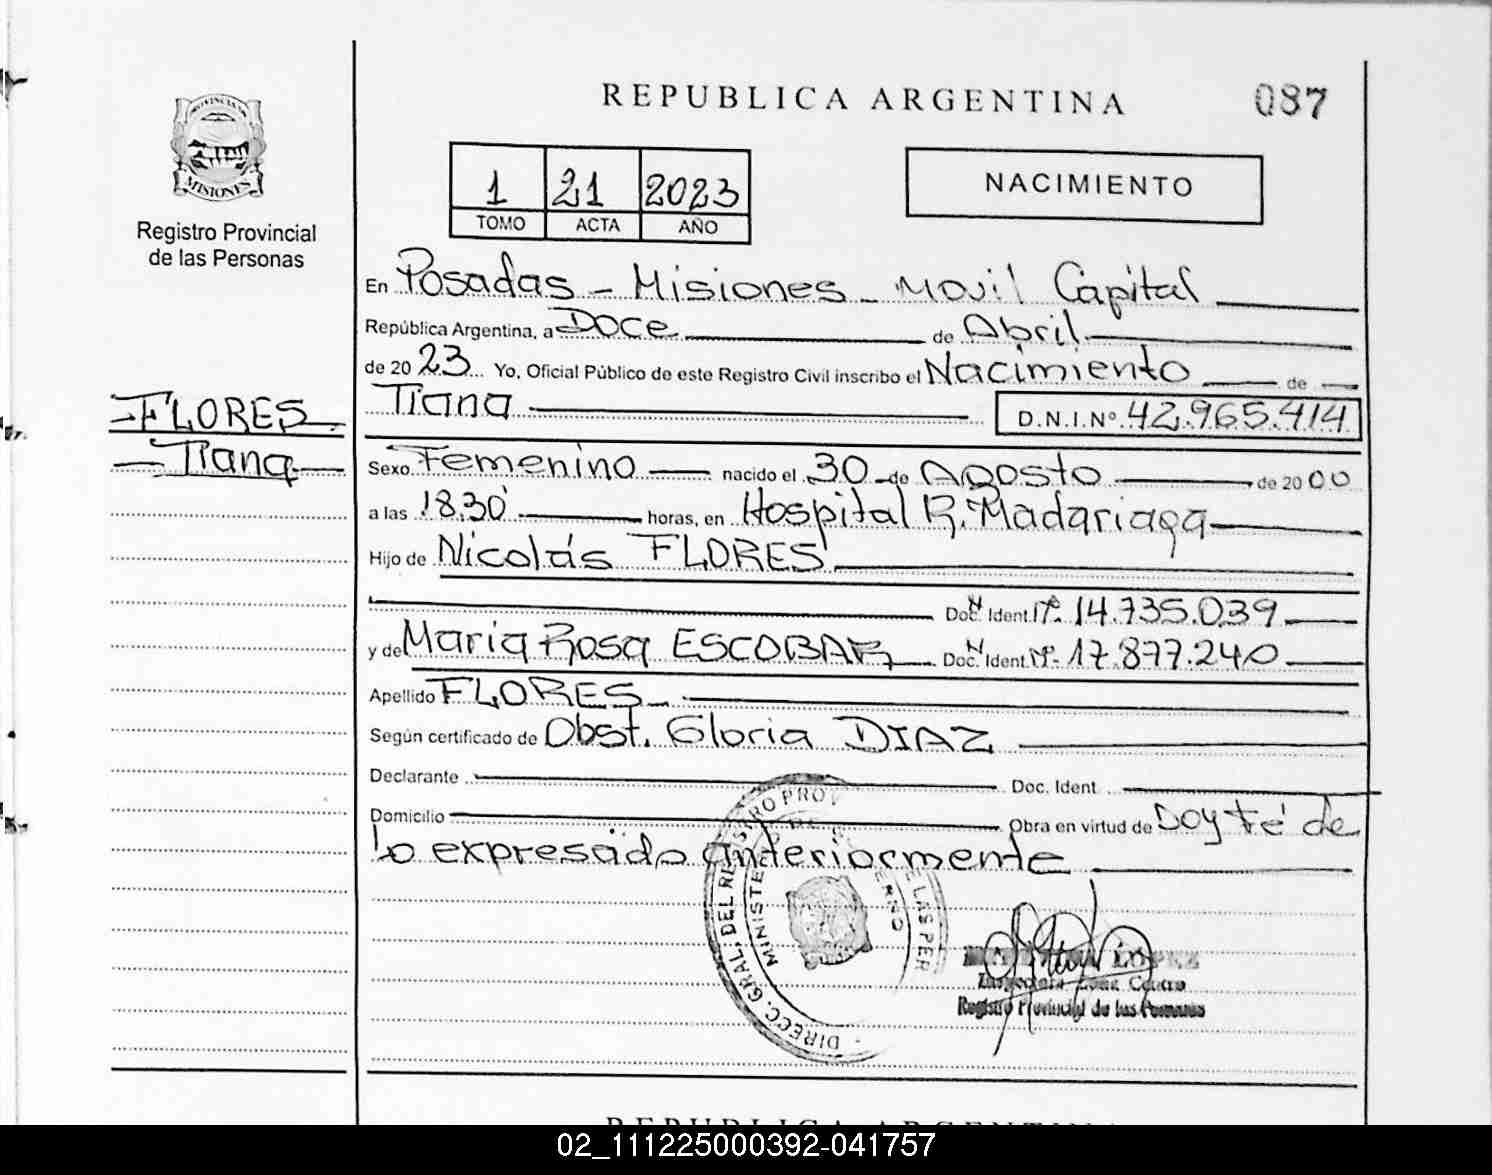 REPUBLICA ARGENTINA
087
PROVINCIA
MISIONES
Registro Provincial
de las Personas
1 21 2023
TOMO ACTA AÑO
NACIMIENTO
En Posadas - Misiones - Movil Capital
República Argentina, a Doce de Abril
de 20 23 Yo, Oficial Público de este Registro Civil inscribo el Nacimiento de
Tiana D.N.I.Nº 42.965.414
FLORES
Tiana
Sexo Femenino nacido el 30 de Agosto de 20 00
a las 18,30 horas, en Hospital R. Madariaga
Hijo de Nicolás FLORES
Doc. Ident. Nº 14.735.039
y de Maria Rosa ESCOBAR Doc. Ident. Nº 17.877.240
Apellido FLORES
Según certificado de Obst. Gloria DIAZ
Declarante Doc. Ident
Domicilio Obra en virtud de Doy fé de
lo expresado anteriormente
DIRECC. GRAL. DEL RE
RO PROV
LAS PER
MINISTE
LOPEZ
Inspectora Zona Centro
Registro Provincial de las Personas
REPUBLICA ARGENTINA
02_111225000392-041757